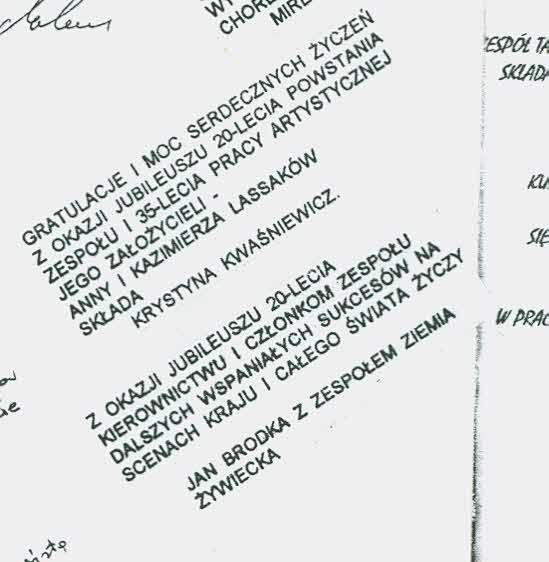 WY
CHORE
MIRE
GRATULACJE I MOC SERDECZNYCH ŻYCZEŃ
Z OKAZJI JUBILEUSZU 20-LECIA POWSTANIA
ZESPOŁU I 35-LECIA PRACY ARTYSTYCZNEJ
JEGO ZAŁOŻYCIELI -
ANNY I KAZIMIERZA LASSAKÓW
SKŁADA
KRYSTYNA KWAŚNIEWICZ.
Z OKAZJI JUBILEUSZU 20-LECIA
KIEROWNICTWU I CZŁONKOM ZESPOŁU
DALSZYCH WSPANIAŁYCH SUKCESÓW NA
SCENACH KRAJU I CAŁEGO ŚWIATA ŻYCZY
JAN BRODKA Z ZESPOŁEM ZIEMIA
ŻYWIECKA
ESPÓŁ TA
SKŁADA
KU
SIĘ
W PRAC